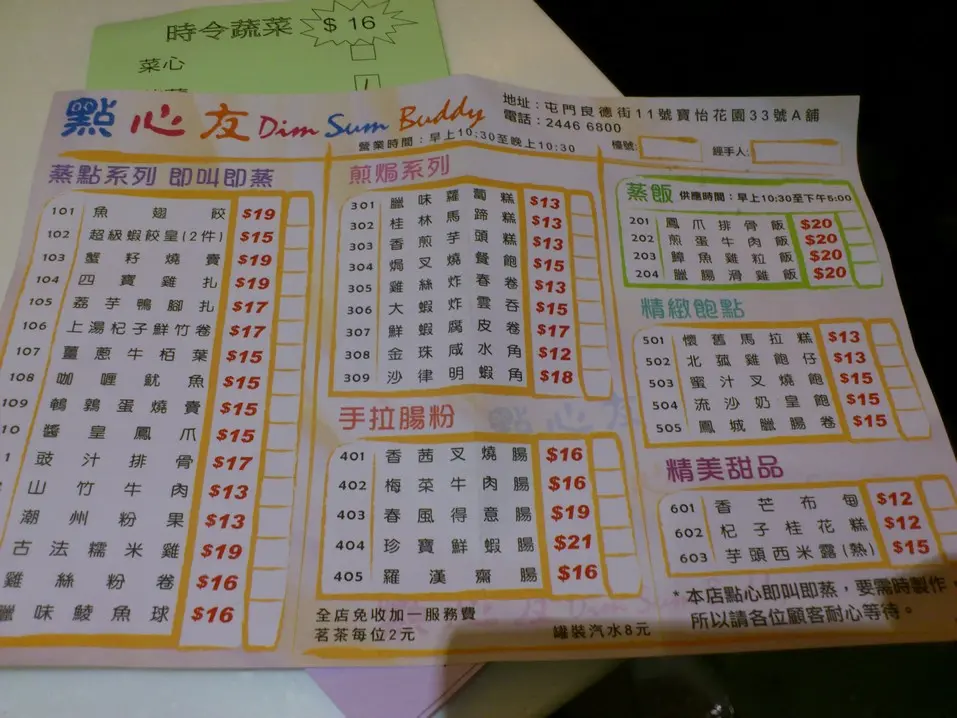 時令蔬菜 $16
菜心
點心友 Dim Sum Buddy
地址：屯門良德街11號寶怡花園33號A舖
電話：2446 6800
營業時間：早上10:30至晚上10:30
檯號：
經手人：
蒸點系列 即叫即蒸
101 魚翅餃 $19
102 超級蝦餃皇(2件) $15
103 蟹籽燒賣 $19
104 四寶雞扎 $19
105 荔芋鴨腳扎 $17
106 上湯杞子鮮竹卷 $17
107 薑蔥牛栢葉 $15
108 咖喱魷魚 $15
109 鵪鶉蛋燒賣 $15
10 醬皇鳳爪 $15
1 豉汁排骨 $17
山竹牛肉 $13
潮州粉果 $13
古法糯米雞 $19
雞絲粉卷 $16
臘味鯪魚球 $16
煎焗系列
301 臘味蘿蔔糕 $13
302 桂林馬蹄糕 $13
303 香煎芋頭糕 $13
304 焗叉燒餐飽 $15
305 雞絲炸春卷 $13
306 大蝦炸雲吞 $15
307 鮮蝦腐皮卷 $17
308 金珠咸水角 $12
309 沙律明蝦角 $18
手拉腸粉
401 香茜叉燒腸 $16
402 梅菜牛肉腸 $16
403 春風得意腸 $19
404 珍寶鮮蝦腸 $21
405 羅漢齋腸 $16
全店免收加一服務費
茗茶每位2元
罐裝汽水8元
蒸飯 供應時間：早上10:30至下午5:00
201 鳳爪排骨飯 $20
202 煎蛋牛肉飯 $20
203 鱆魚雞粒飯 $20
204 臘腸滑雞飯 $20
精緻飽點
501 懷舊馬拉糕 $13
502 北菰雞飽仔 $13
503 蜜汁叉燒飽 $15
504 流沙奶皇飽 $15
505 鳳城臘腸卷 $15
精美甜品
601 香芒布甸 $12
602 杞子桂花糕 $12
603 芋頭西米露(熱) $15
* 本店點心即叫即蒸，要需時製作，
所以請各位顧客耐心等待。